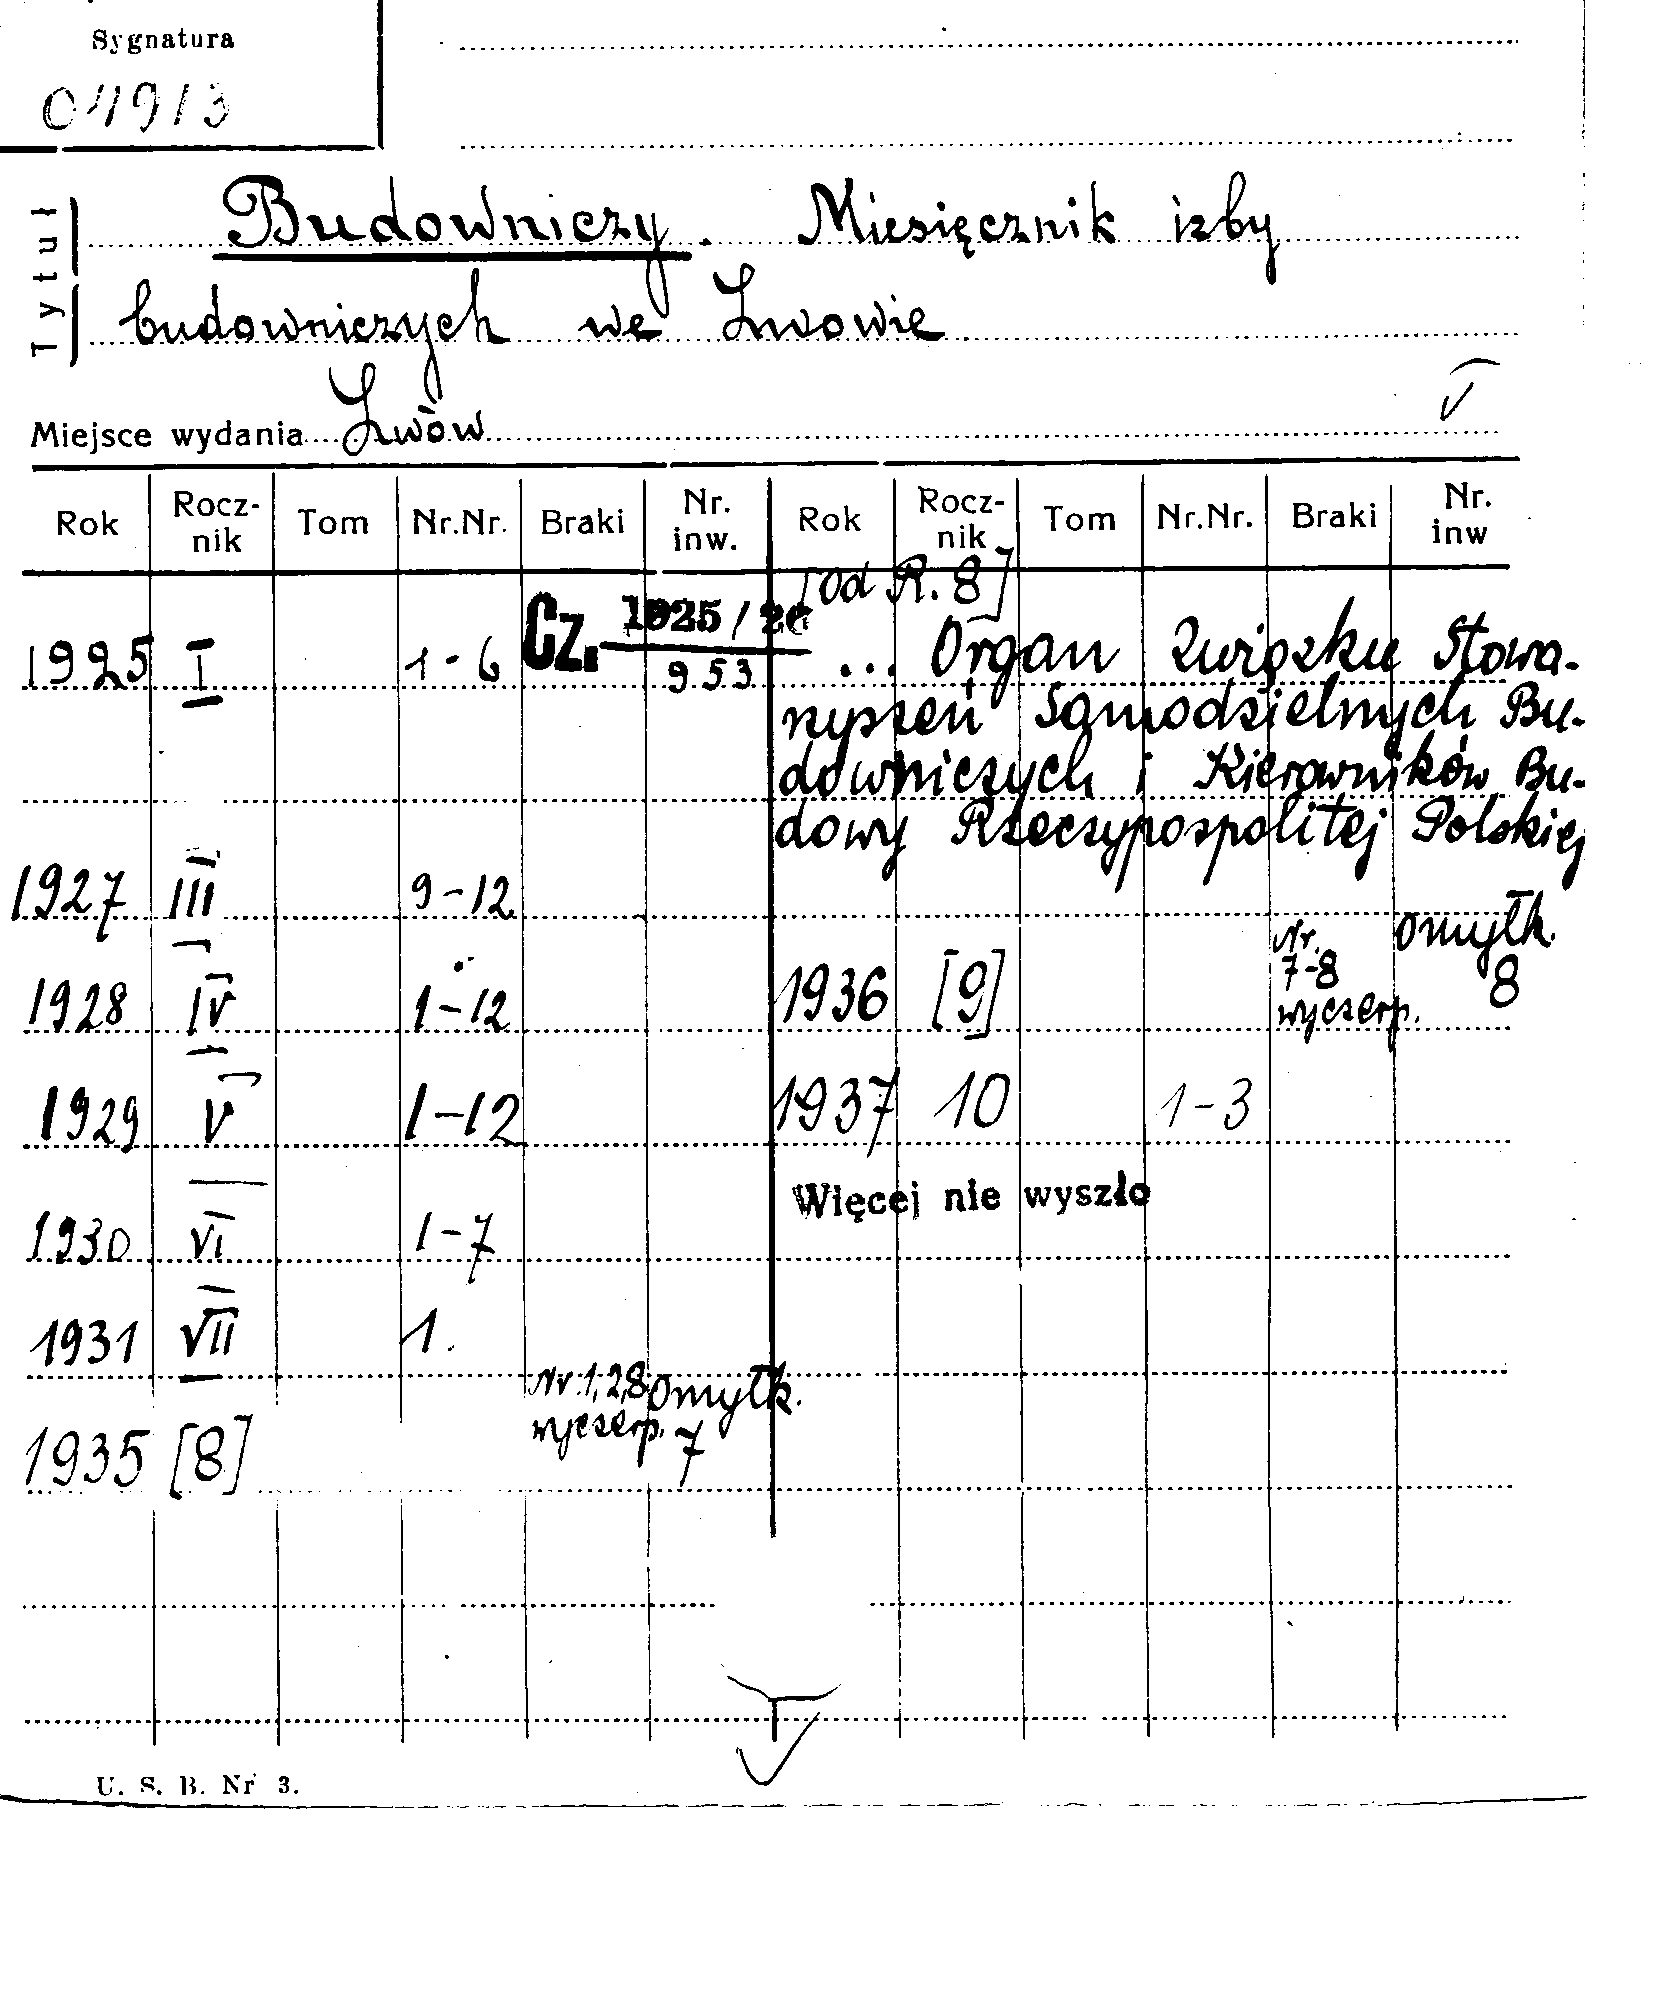 Sygnatura
04913
Tytuł
Budowniczy. Miesięcznik izby
budowniczych we Lwowie
Miejsce wydania Lwów
V
Rok Rocz-nik Tom Nr.Nr. Braki Nr. inw. Rok Rocz-nik Tom Nr.Nr. Braki Nr. inw
1925 I 1-6 Cz. 1925/26
953
[od R. 8]
... Organ Związku Stowa-
rzyszeń Samodzielnych Bu-
downiczych i Kierowników Bu-
dowy Rzeczypospolitej Polskiej
1927 III 9-12
1928 IV 1-12
1929 V 1-12
1930 VI 1-7
1931 VII 1.
1935 [8] Nr 1,2,8 wyczerp. omyłk. 7
1936 [9] Nr. 7-8 wyczerp. omyłk. 8
1937 10 1-3
Więcej nie wyszło
U. S. B. Nr 3.